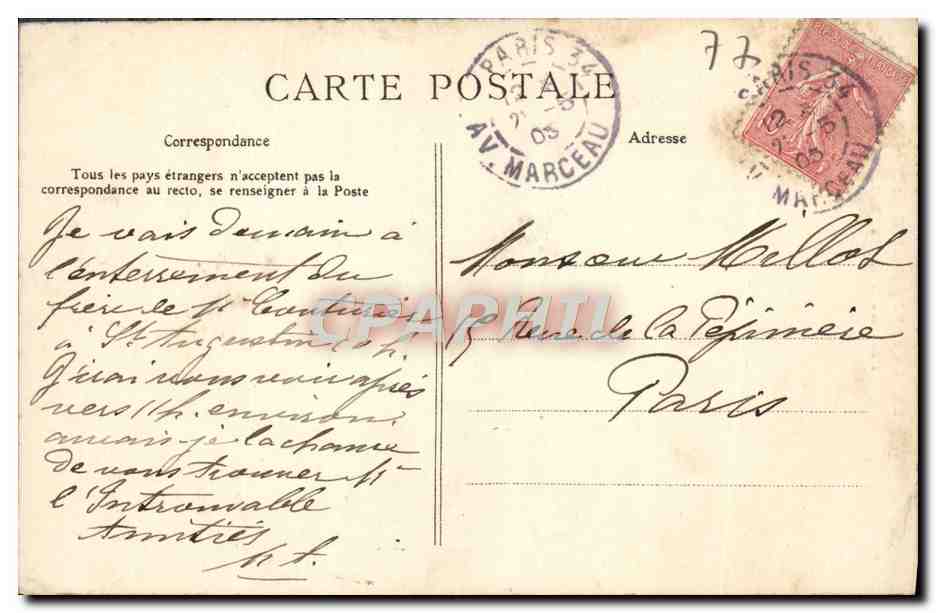 CARTE POSTALE
77
PARIS 34
5
05
AV. MARCEAU
PARIS 34
5
05
MARCEAU
Correspondance
Adresse
Tous les pays étrangers n'acceptent pas la
correspondance au recto, se renseigner à la Poste
Je vais demain à
l'enterrement du
frère de Mr Couturier
à St Augustin 10 h.
J'irai vous voir après
vers 11 h. environ
aurais-je la chance
de vous trouver Mr
l'Introuvable
Amitiés
Monsieur Millot
15 Rue de la Pépinière
Paris
CPAPHIL